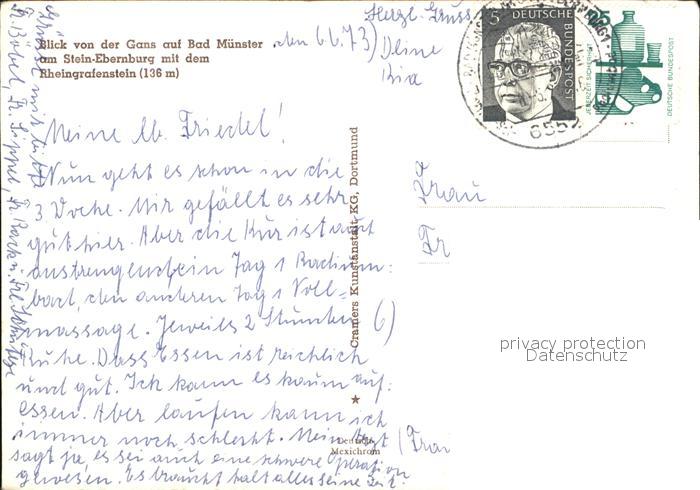 Blick von der Gans auf Bad Münster
am Stein-Ebernburg mit dem
Rheingrafenstein (136 m)
den 6.6.73)
Herzl. Gruss
Deine
5
DEUTSCHE BUNDESPOST
JEDERZEIT SICHERHEIT
DEUTSCHE BUNDESPOST
6552
Meine lb. Friedel!
Nun geht es schon in die
3 Woche. Mir gefällt es sehr
gut hier. Aber die Kur ist auch
anstrengend ein Tag 1 Radium:
bad, den anderen Tag 1 Voll=
massage. Jeweils 2 Stunden
Ruhe. Dass Essen ist reichlich
und gut. Ich kann es kaum auf:
essen. Aber laufen kann ich
immer noch schlecht. Mein Arzt
sagt ja, es sei auch eine schwere Operation
gewesen. Es braucht halt alles seine Zeit.
Cramers Kunstanstalt KG, Dortmund
Mexichrom
Frau
Fr
privacy protection
Datenschutz